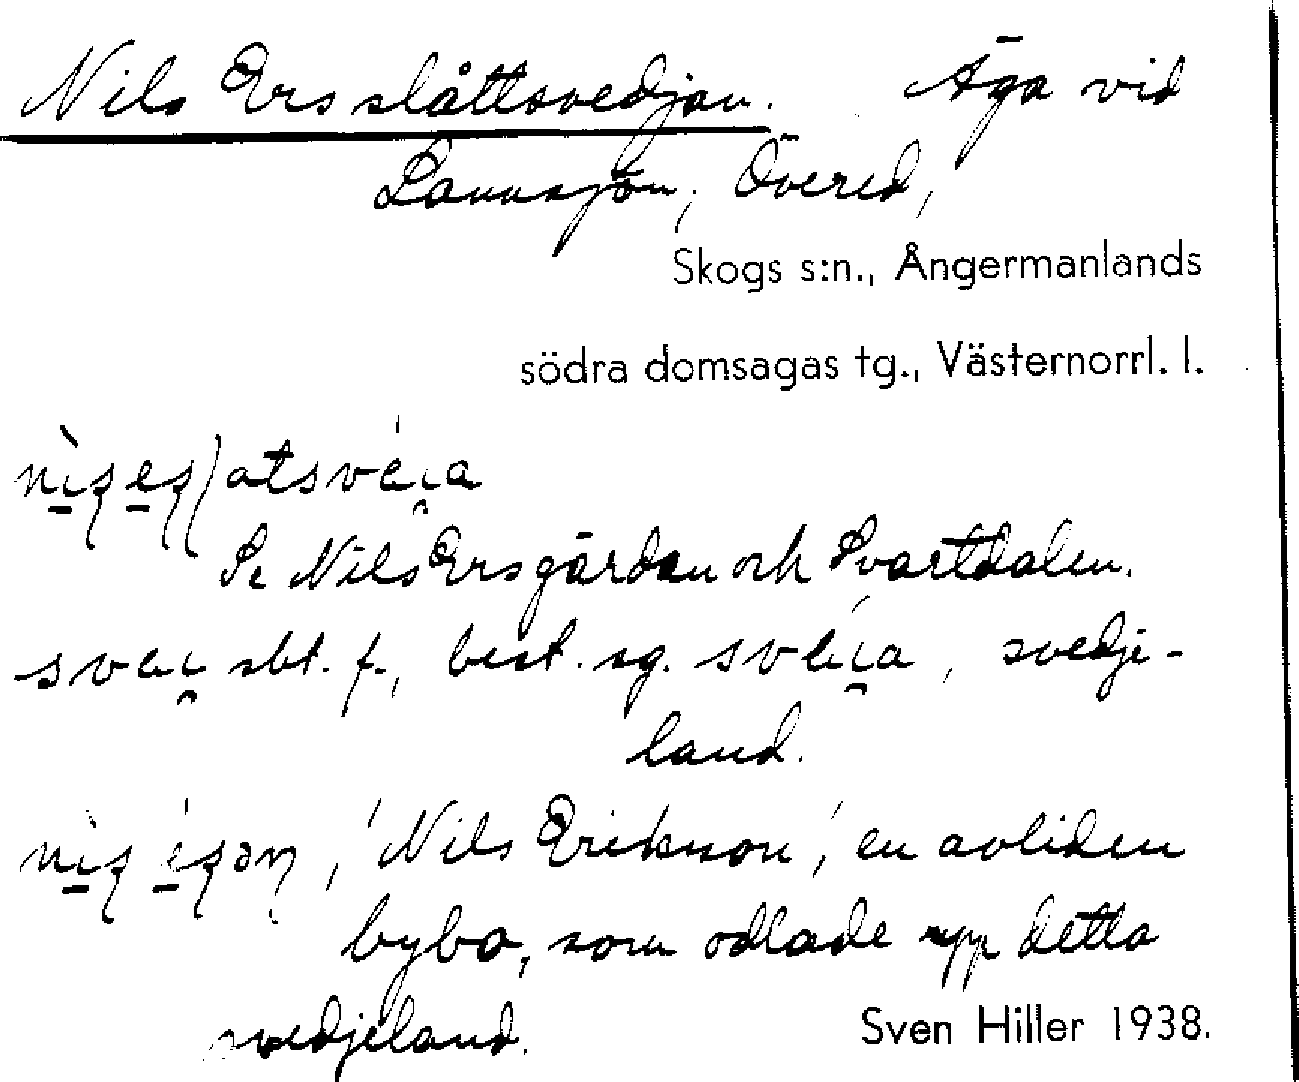 Nils Ers slåttsvedjan. Äga vid
Lannsjön, Övered,
Skogs s:n., Ångermanlands
södra domsagas tg., Västernorrl. l.
Se Nils Ersgärdan och Svartdalen.
sbt. f., best. sg. , svedje-
land.
, 'Nils Erikson', en avliden
bybo, som odlade upp detta
svedjeland. Sven Hiller 1938.